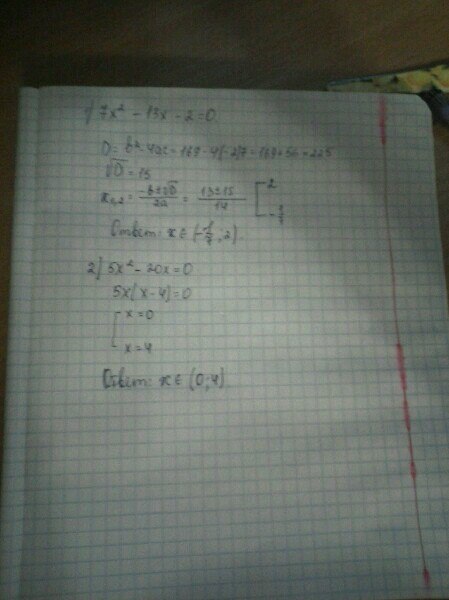 1) 7x² - 13x - 2 = 0.
D = b² - 4ac = 169 - 4(-2)7 = 169 + 56 = 225
√D = 15
x₁,₂ = (-b±√D)/2a = (13±15)/14 [ 2
Ответ: x ∈ (-1/7; 2).
2) 5x² - 20x = 0
5x(x - 4) = 0
[ x = 0
x = 4
Ответ: x ∈ (0; 4).